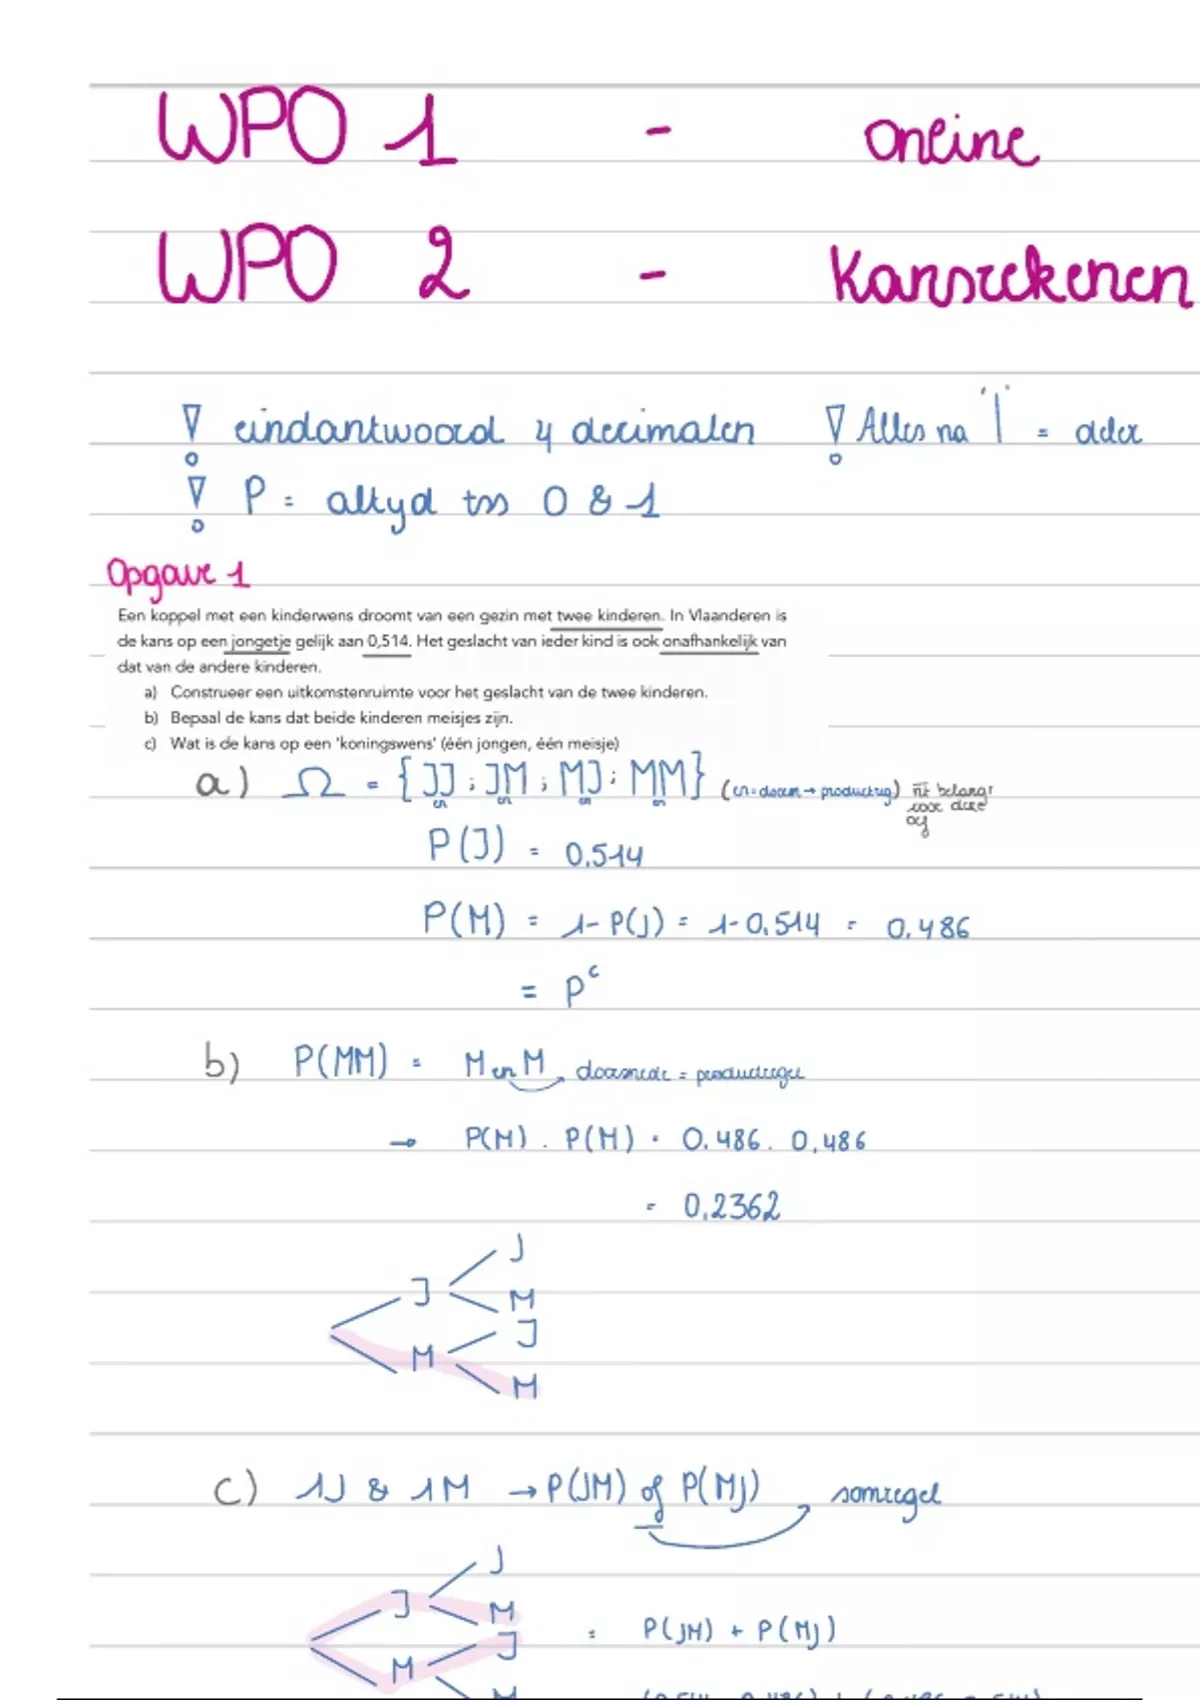 WPO 1 - online
WPO 2 - Kansrekenen
! eindantwoord 4 decimalen ! Alles na '|' = deler
! P = altijd tss 0 & 1
Opgave 1
Een koppel met een kinderwens droomt van een gezin met twee kinderen. In Vlaanderen is
de kans op een jongetje gelijk aan 0,514. Het geslacht van ieder kind is ook onafhankelijk van
dat van de andere kinderen.
a) Construeer een uitkomstenruimte voor het geslacht van de twee kinderen.
b) Bepaal de kans dat beide kinderen meisjes zijn.
c) Wat is de kans op een 'koningswens' (één jongen, één meisje)
a) Ω = {JJ ; JM ; MJ ; MM} (en = doorsn → productreg) nt belangr
en en en en voor deze
oef
P(J) = 0,514
P(M) = 1 - P(J) = 1 - 0,514 = 0,486
= Pᶜ
b) P(MM) = M en M doorsnede = productregel
→ P(M) . P(M) = 0,486 . 0,486
= 0,2362
J
J
M
J
M
M
c) 1J & 1M → P(JM) of P(MJ) somregel
J
J
M
= P(JM) + P(MJ)
J
M
M
(0,514 . 0,486) + (0,486 . 0,514)